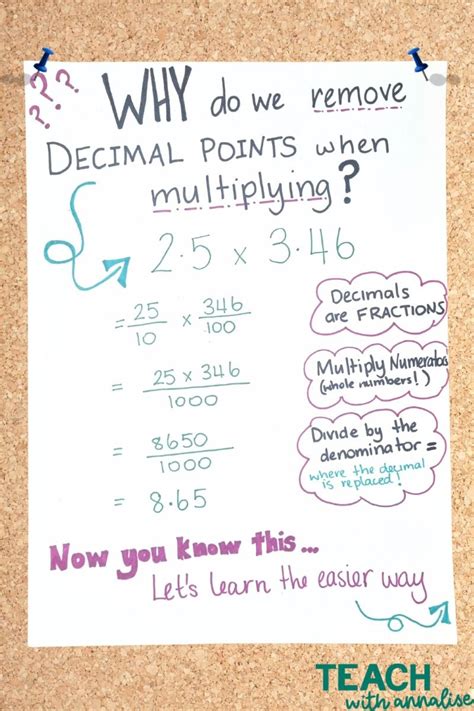 ???
WHY do we remove
DECIMAL POINTS when
multiplying?
2.5 x 3.46
= 25/10 x 346/100
= 25 x 346/1000
= 8650/1000
= 8.65
Decimals
are FRACTIONS
Multiply Numerators
(whole numbers!)
Divide by the
denominator =
where the decimal
is replaced!
Now you know this...
Let's learn the easier way
TEACH
with annalise